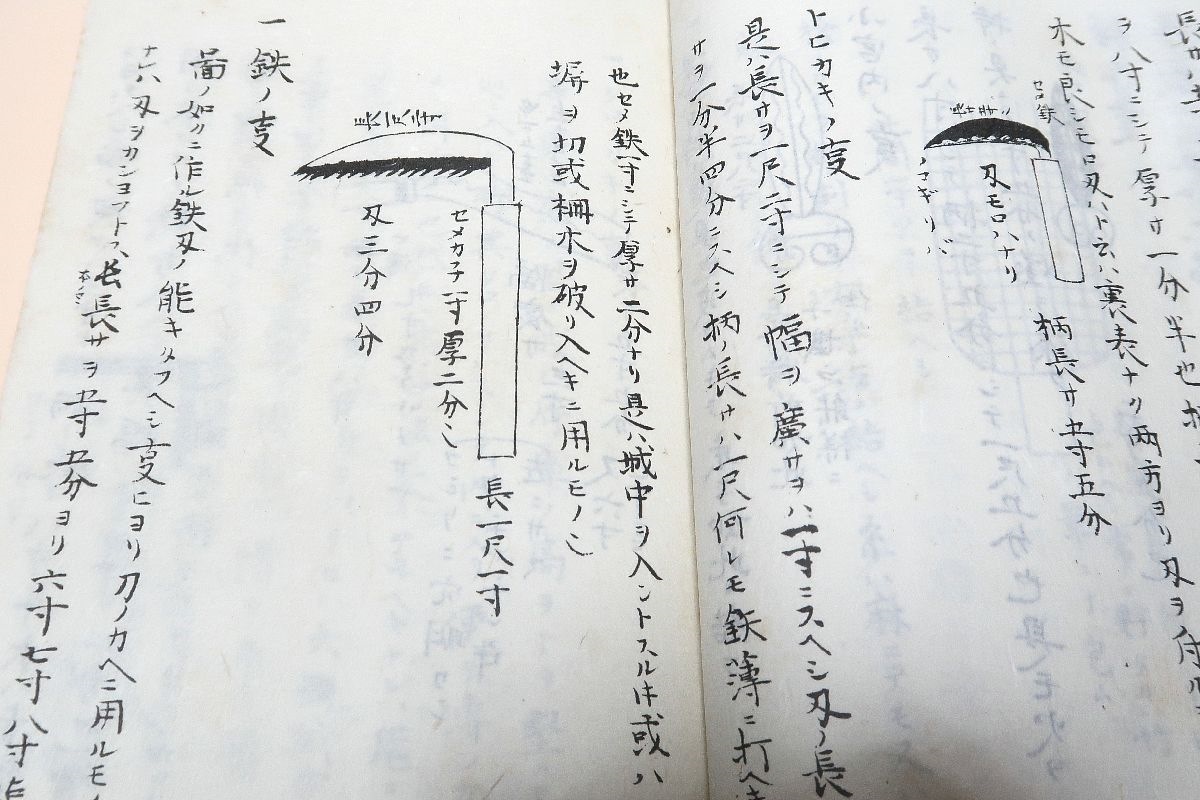 ヲ八寸ニシテ厚サ一分半也
木モ良シモロ刃ハト云ハ裏表ナリ両方ヨリ刃ヲ付ル
セメ鉄
柄長サ五寸五分
刃モロハナリ
ノコギリバ
トヒカキノ事
是ハ長サヲ一尺二寸ニシテ幅ヲ廣サヲハ一寸ニスヘシ刃ノ長
サヲ一分半四分ニスヘシ柄ノ長サハ一尺何レモ鉄薄ニ打ヘキ
也セメ鉄一寸ニシテ厚サ二分ナリ是ハ城中ヲ入ントスル時或ハ
塀ヲ切或柵木ヲ破リ入ヘキニ用ルモノ也
長一尺一寸
セメカチ一寸厚二分也
刃三分四分
一鉄ノ事
圖ノ如クニ作ル鉄刃ノ能キタフヘシ事ニヨリ刀ノカヘニ用ルモ
長サヲ五寸五分ヨリ六寸七寸八寸